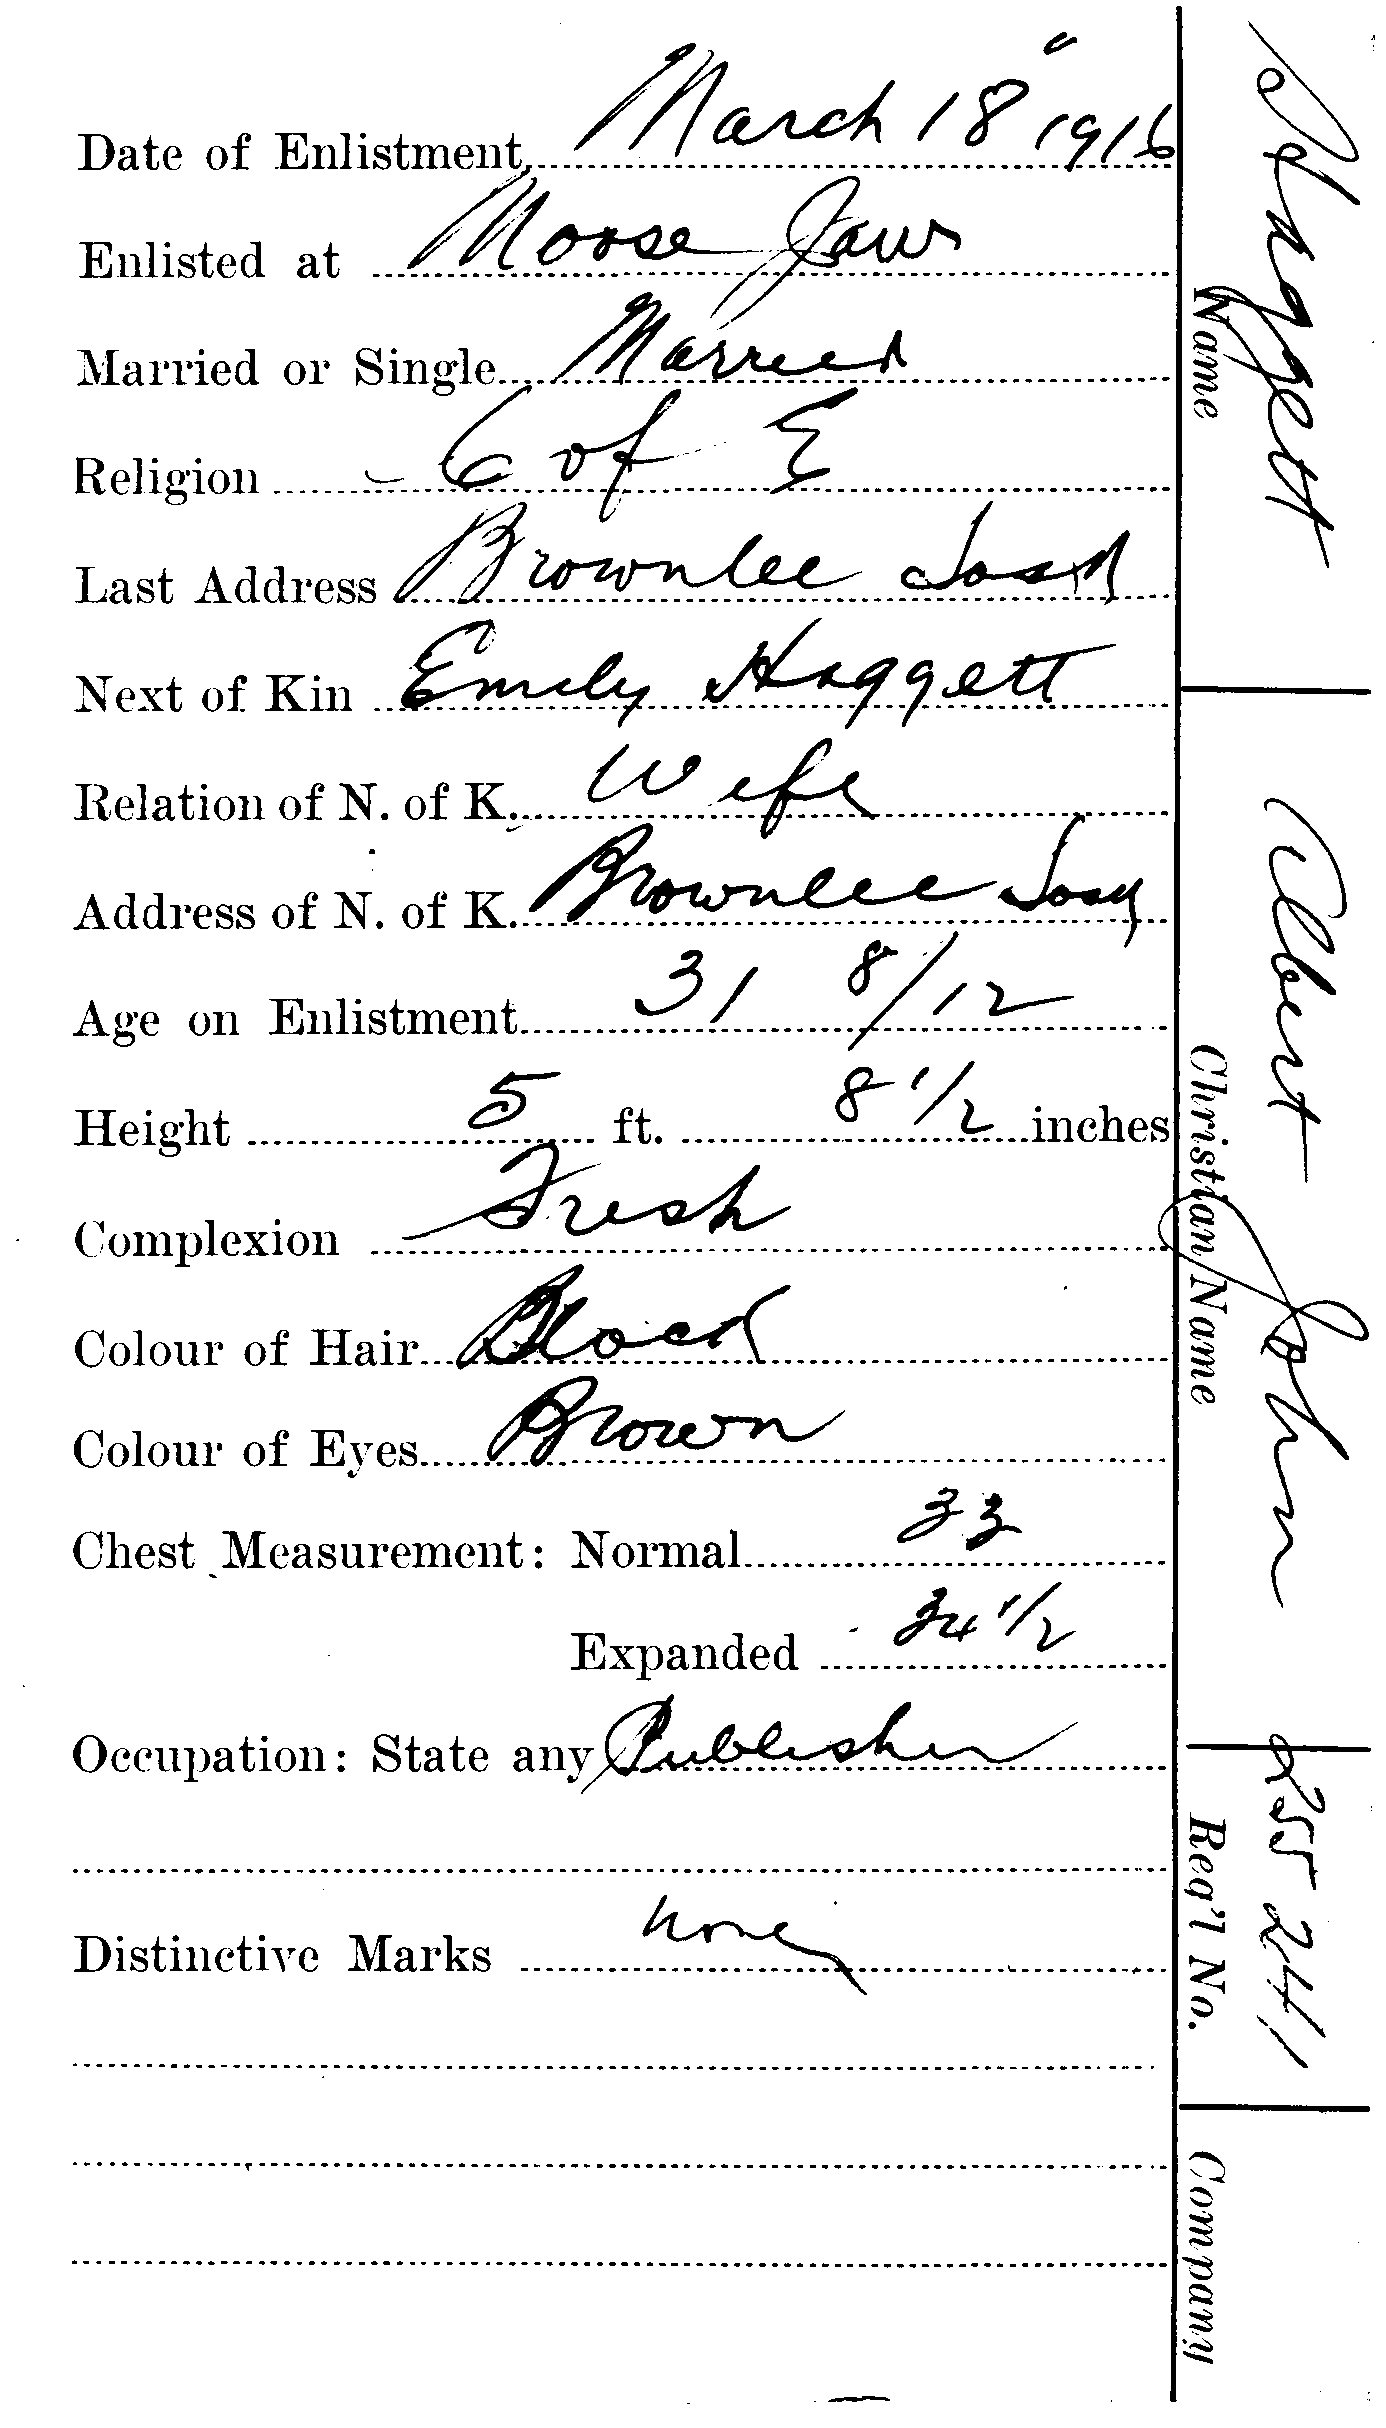 Date of Enlistment March 18" 1916
Enlisted at Moose Jaw
Married or Single Married
Religion C of E
Last Address Brownlee Sask
Next of Kin Emily Haggett
Relation of N. of K. Wife
Address of N. of K. Brownlee Sask
Age on Enlistment 31 8/12
Height 5 ft. 8 1/2 inches
Complexion Fresh
Colour of Hair Black
Colour of Eyes Brown
Chest Measurement: Normal 33
Expanded 34 1/2
Occupation: State any Publisher
Distinctive Marks none
Haggett
Name
Albert John
Christian Name
255241
Reg'l No.
Company